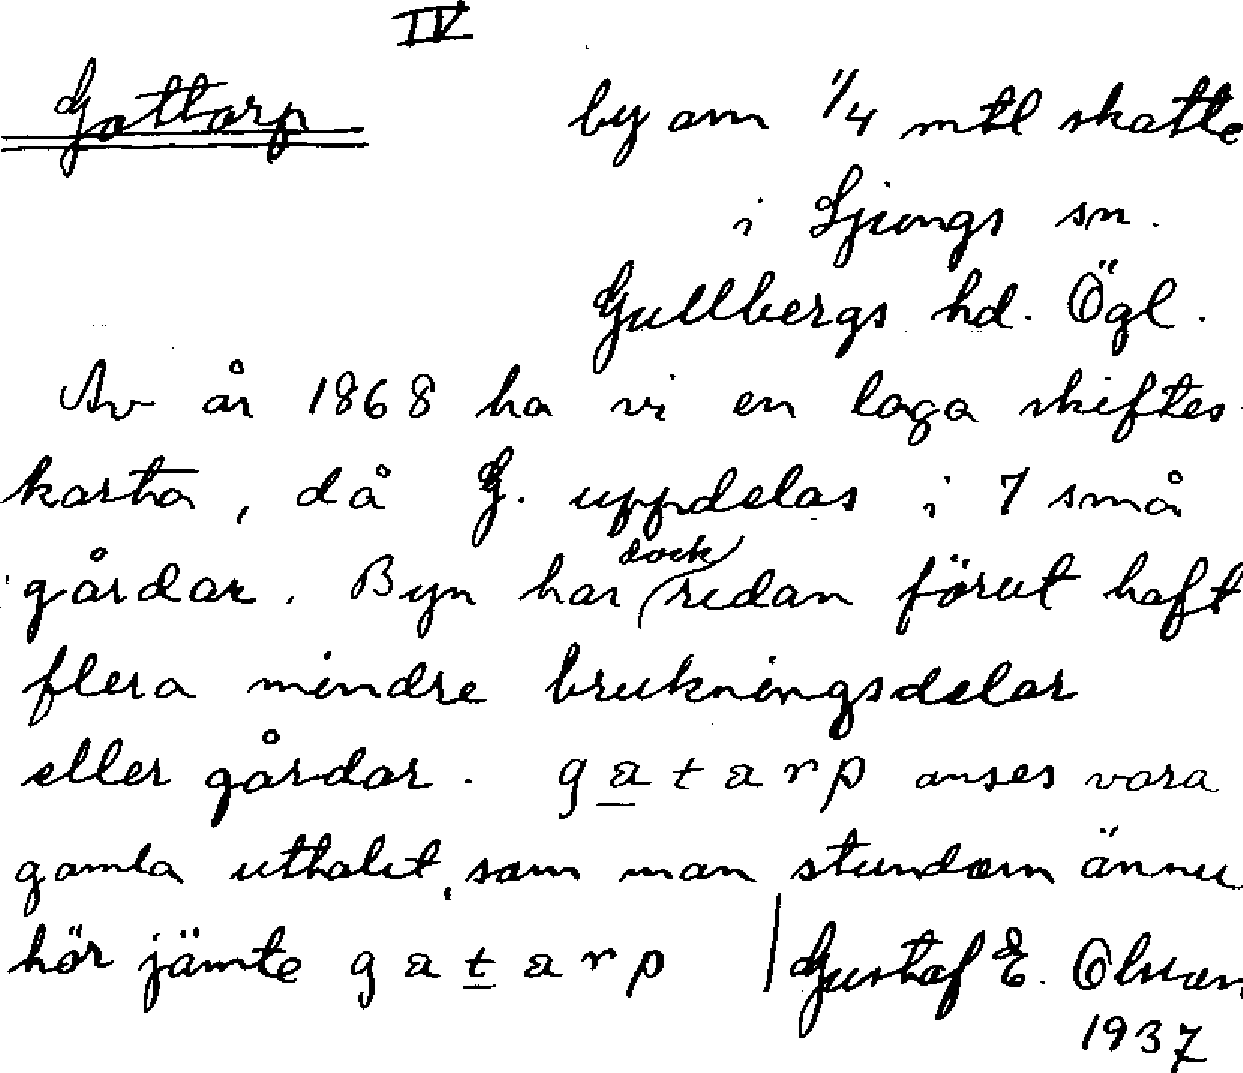 IV
Gattarp by om 1/4 mtl skatte
i Ljungs sn.
Gullbergs hd. Ögl.
Av år 1868 ha vi en laga skiftes-
karta, då G. uppdelas i 7 små
gårdar. Byn har dock redan förut haft
flera mindre brukningsdelar
eller gårdar. gatarp anses vara
gamla uttalet, som man stundom ännu
hör jämte gatarp | Gustaf E. Olsson
1937